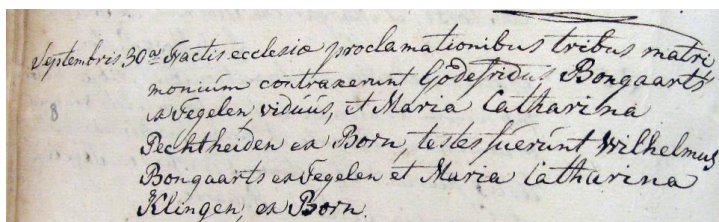 Septembris 30a Factis ecclesiæ proclamationibus tribus matri
monium contraxerunt Godefridus Bongaarts
ex Tegelen, viduus, et Maria Catharina
8
Pechtheiden ex Born, testes fuerunt Wilhelmus
Bongaarts ex Tegelen et Maria Catharina
Klingen, ex Born.